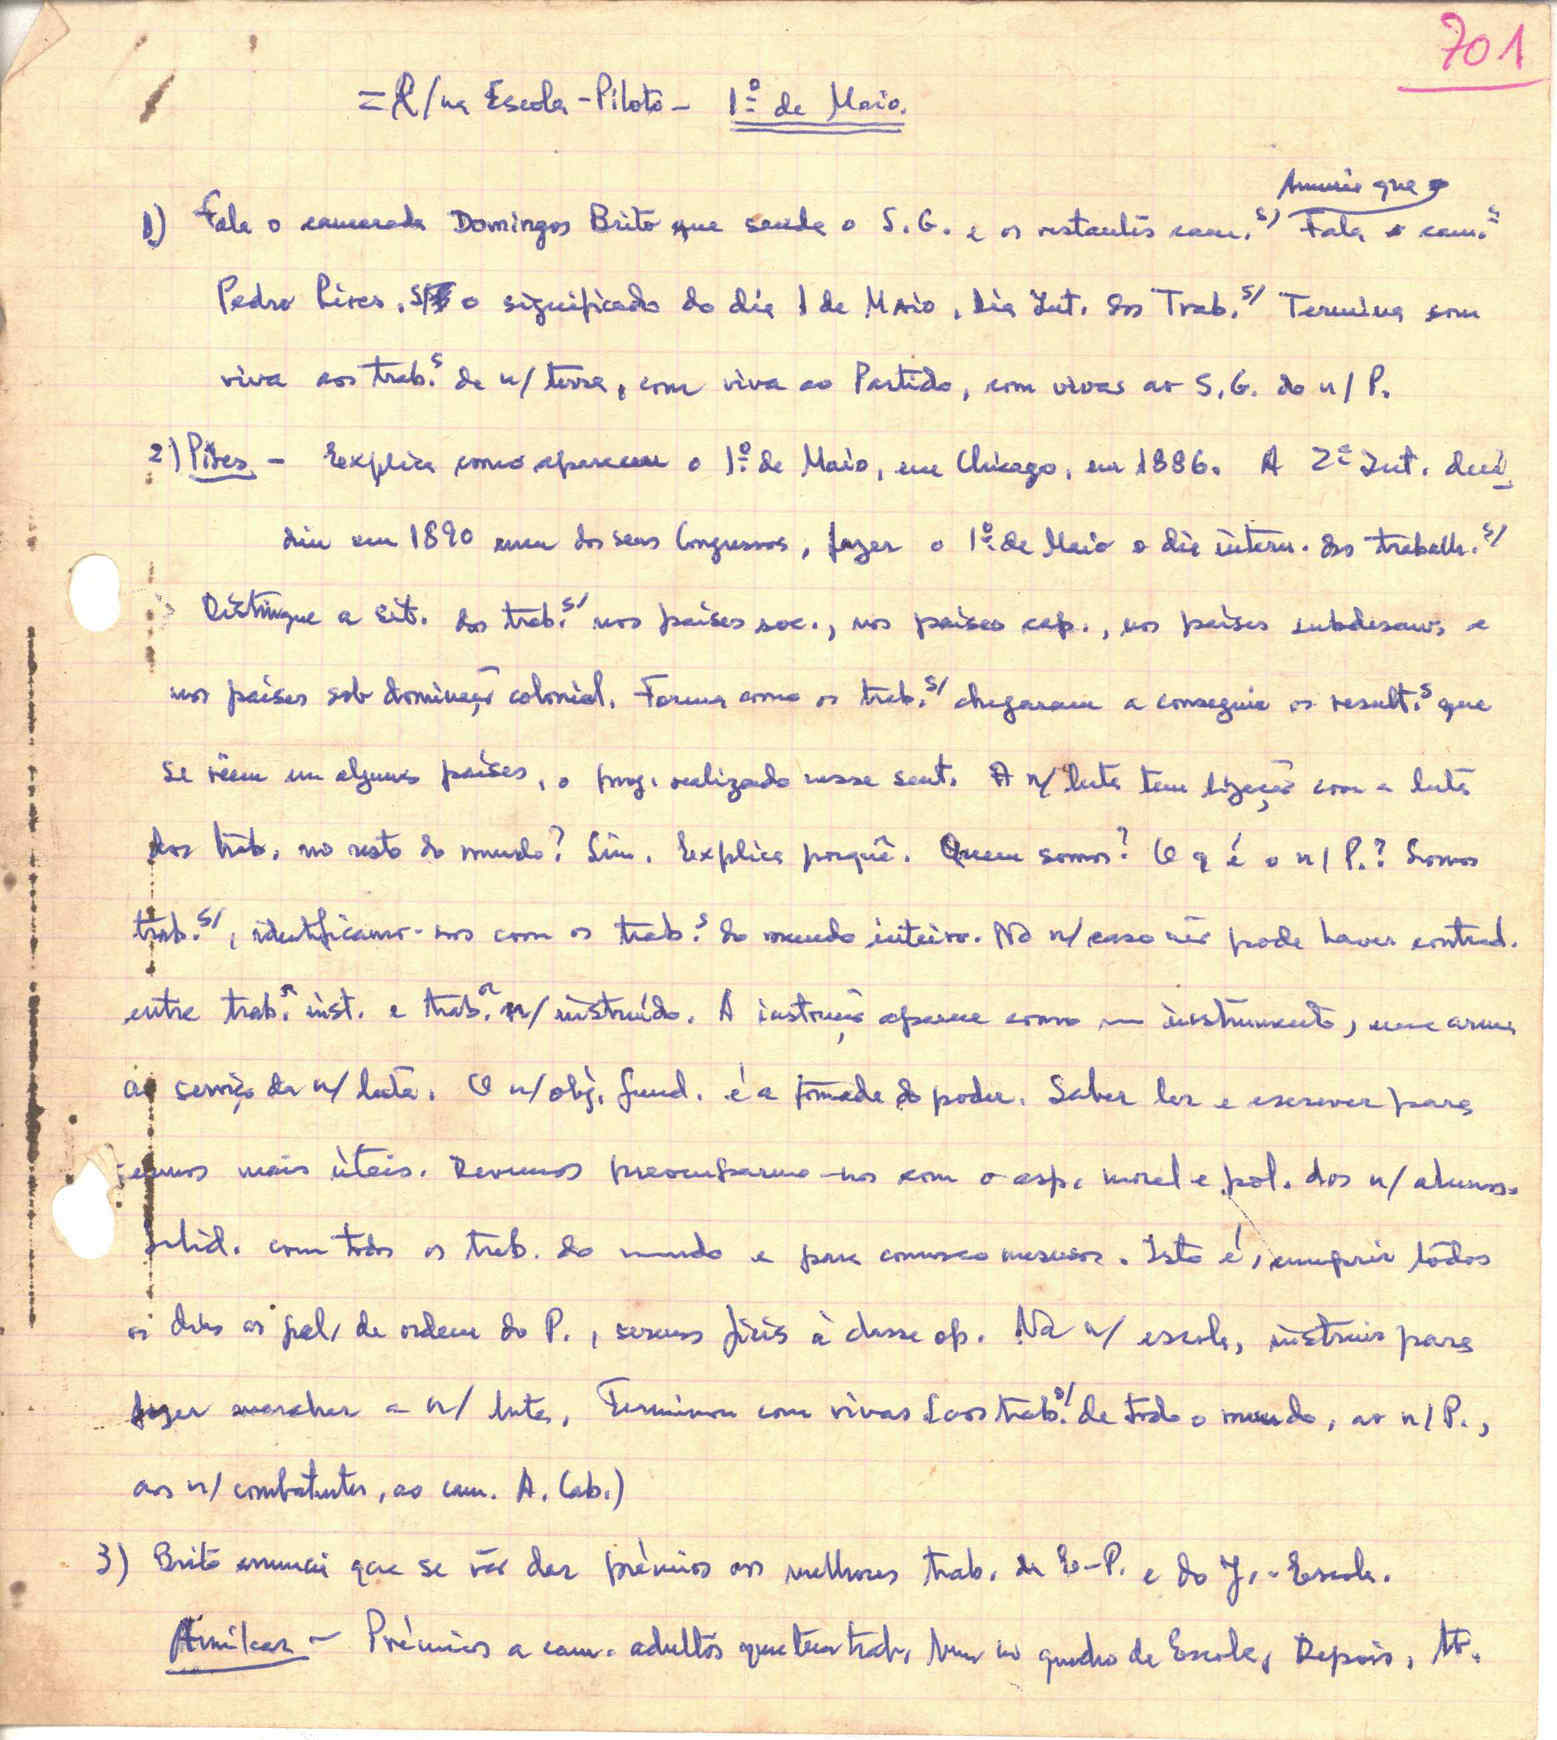 701
= R/na Escola-Piloto - 1º de Maio.
Anuncia que
1) Fala o camarada Domingos Brito que saúda o S.G. e os restantes cam.s/ Fala o cam.s
Pedro Pires, s/ o significado do dia 1 de Maio, dia Int. dos Trab.s/ Termina com
viva aos trab.s de n/ terra, com viva ao Partido, com vivas ao S.G. do n/ P.
2) Pires - Explica como apareceu o 1º de Maio, em Chicago, em 1886. A 2ª Int. deci
diu em 1890 num dos seus Congressos, fazer o 1º de Maio o dia intern. dos trabalh.s/
Distingue a sit. dos trab.s/ nos países soc., nos países cap., nos países subdesenv. e
nos países sob dominação colonial. Forma como os trab.s/ chegaram a conseguir os result.s que
se vêem em alguns países, o prog. realizado nesse sent. A n/ luta tem ligação com a luta
dos trab. no resto do mundo? Sim. Explica porquê. Quem somos? O q é o n/ P.? Somos
trab.s/, identificamo-nos com os trab.s do mundo inteiro. No n/ caso não pode haver contrad.
entre trab.r inst. e trab.r n/ instruído. A instrução aparece como um instrumento, uma arma
ao serviço da n/ luta. O n/ obj. fund. é a tomada do poder. Saber ler e escrever para
sermos mais úteis. Devemos preocuparmo-nos com o asp. moral e pol. dos n/ alunos.
Solid. com todos os trab. do mundo e para connosco mesmos. Isto é, cumprir todos
os dias as pal. de ordem do P., sermos fiéis à classe op. Na n/ escola, instruir para
fazer marchar a n/ luta. Terminou com vivas (aos trab.s/ de todo o mundo, ao n/ P.,
aos n/ combatentes, ao cam. A. Cab.)
3) Brito anuncia que se vão dar prémios aos melhores trab. da E-P. e do J.-Escola.
Amílcar - Prémios a cam. adultos que têm trab. no quadro de Escola. Depois,